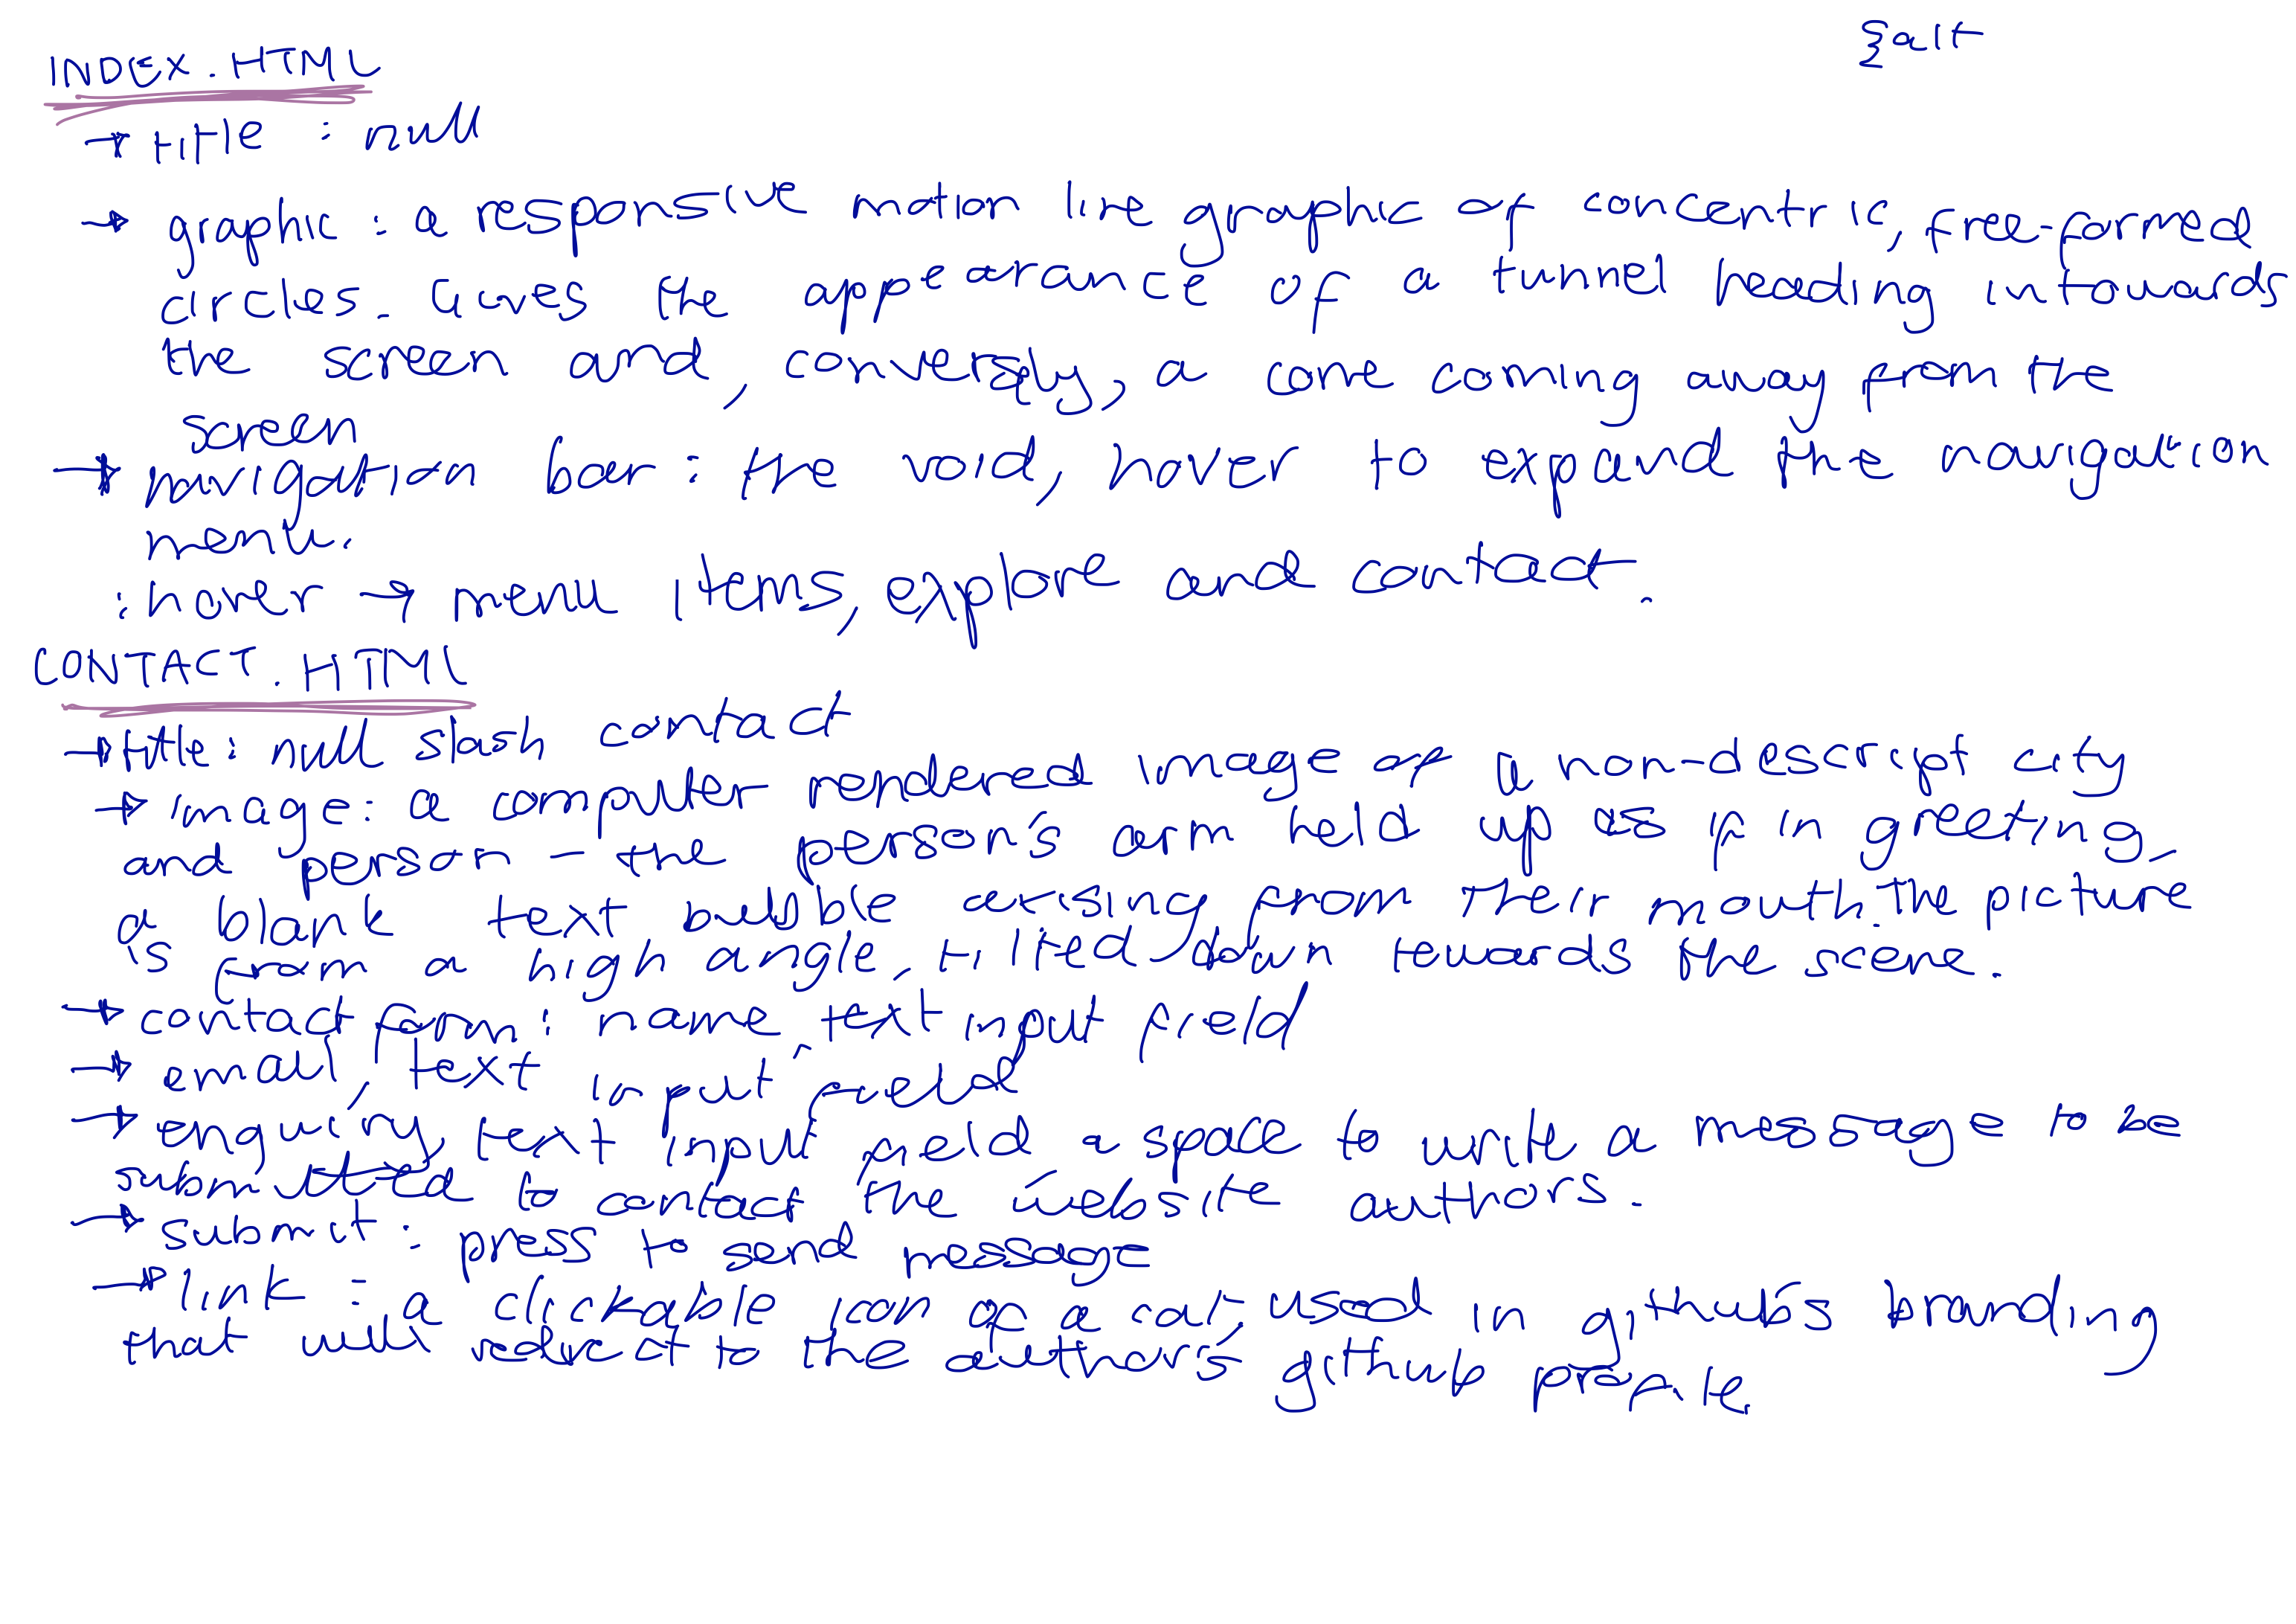 {alt
INDEX.HTML
→ title : null
→ graphic : a responsive motion line graphic of concentric, free-formed
circles. Gives the appearance of a tunnel heading in towards
the screen and, conversely, a cone coming away from the
screen
→ navigation bar : the void, hover to expand the navigation
menu.
: hover → menu items, explore and contact.
CONTACT.HTML
→ title : null slash contact
→ image : a computer rendered image of a non-descript city
and person - the person's arm held up as if in greeting,
a blank text bubble arising from their mouth. The picture
is from a high angle, tilted down towards the scene.
→ contact form : name, text input field
→ email, text input field
→ enquiry, text input field a space to write a message to be
submitted to contact the website authors.
→ submit : press to send message
→ link : a clickable icon of a cat, used in github's branding
that will redirect to the author's github profile.